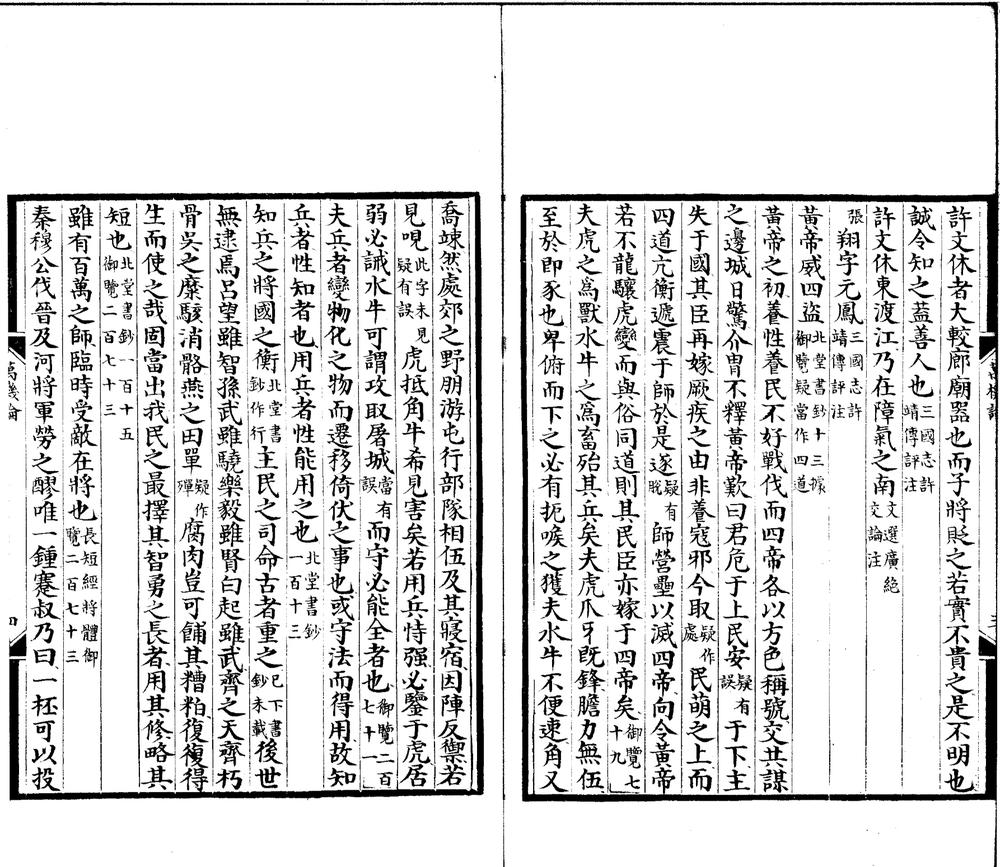 許文休者大較廊廟器也而子將貶之若實不貴之是不明也
誠令知之蓋善人也三國志許靖傳評注
許文休東渡江乃在障氣之南文選廣絶交論注
張翔字元鳳三國志許靖傳評注
黃帝威四盜北堂書鈔十三據御覽疑當作四道
黃帝之初養性養民不好戰伐而四帝各以方色稱號交共謀
之邊城日驚介胄不釋黃帝歎曰君危于上民安疑有誤于下主
失于國其臣再嫁厥疾之由非養寇邪今取疑作處民萌之上而
四道亢衡遞震于師於是遂疑有脫師營壘以滅四帝向令黃帝
若不龍驤虎變而與俗同道則其民臣亦嫁于四帝矣御覽七十九
夫虎之爲獸水牛之爲畜殆其兵矣夫虎爪牙既鋒膽力無伍
至於即豕也卑俯而下之必有扼喉之獲夫水牛不便速角又
喬竦然處郊之野朋游屯行部隊相伍及其寢宿因陣反禦若
見哯此字未見疑有誤虎抵角牛希見害矣若用兵恃强必鑒于虎居
弱必誡水牛可謂攻取屠城當有誤而守必能全者也御覽二百七十一
夫兵者變物化之物而遷移倚伏之事也或守法而得用故知
兵者性知者也用兵者性能用之也北堂書鈔一百十三
知兵之將國之衡北堂書鈔作行主民之司命古者重之已下書鈔未載後世
無逮焉呂望雖智孫武雖驍樂毅雖賢白起雖武齊之天齊朽
骨吳之糜骸消骼燕之田單疑作殫腐肉豈可餔其糟粕復復得
生而使之哉固當出我民之最擇其智勇之長者用其修略其
短也北堂書鈔一百十五御覽二百七十三
雖有百萬之師臨時受敵在將也長短經將體御覽二百七十三
秦穆公伐晉及河將軍勞之醪唯一鍾蹇叔乃曰一杯可以投
萬機論
四